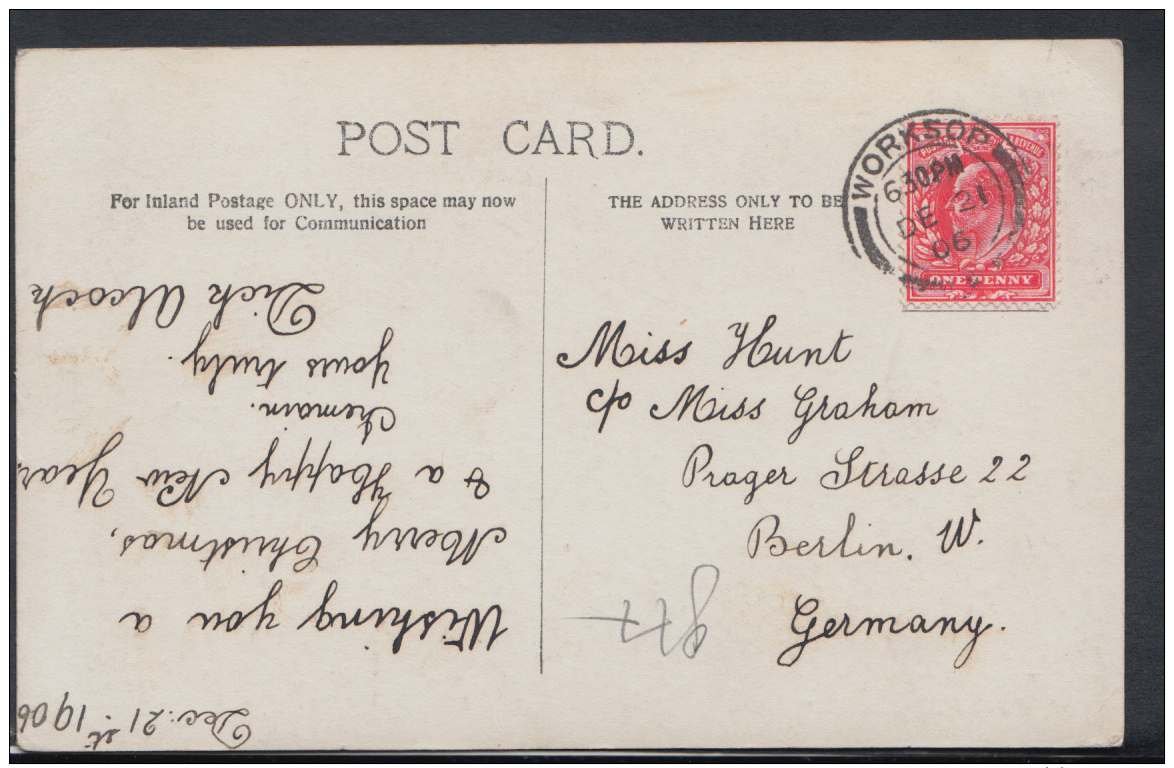 POST CARD.
For Inland Postage ONLY, this space may now
be used for Communication
THE ADDRESS ONLY TO BE
WRITTEN HERE
WORKSOP
6 30 PM
DE 21
06
ONE PENNY
Dec: 21st. 1906
Wishing you a
Merry Christmas,
& a Happy New Year
I remain.
Yours truly.
Dick Alcock
Miss Hunt
c/o Miss Graham
Prager Strasse 22
Berlin. W.
Germany.